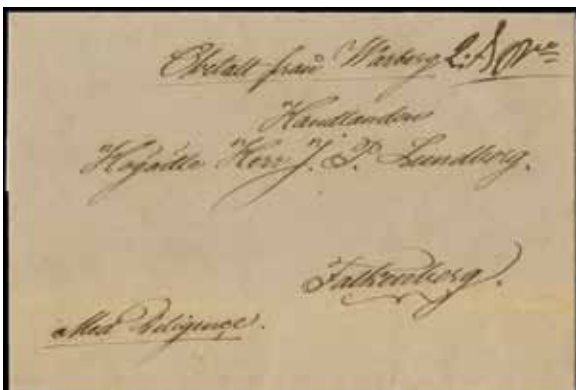 Obetalt från Warberg
Handlanden
Högädle Herr J. P. Lundberg.
Falkenberg.
Med Diligence.